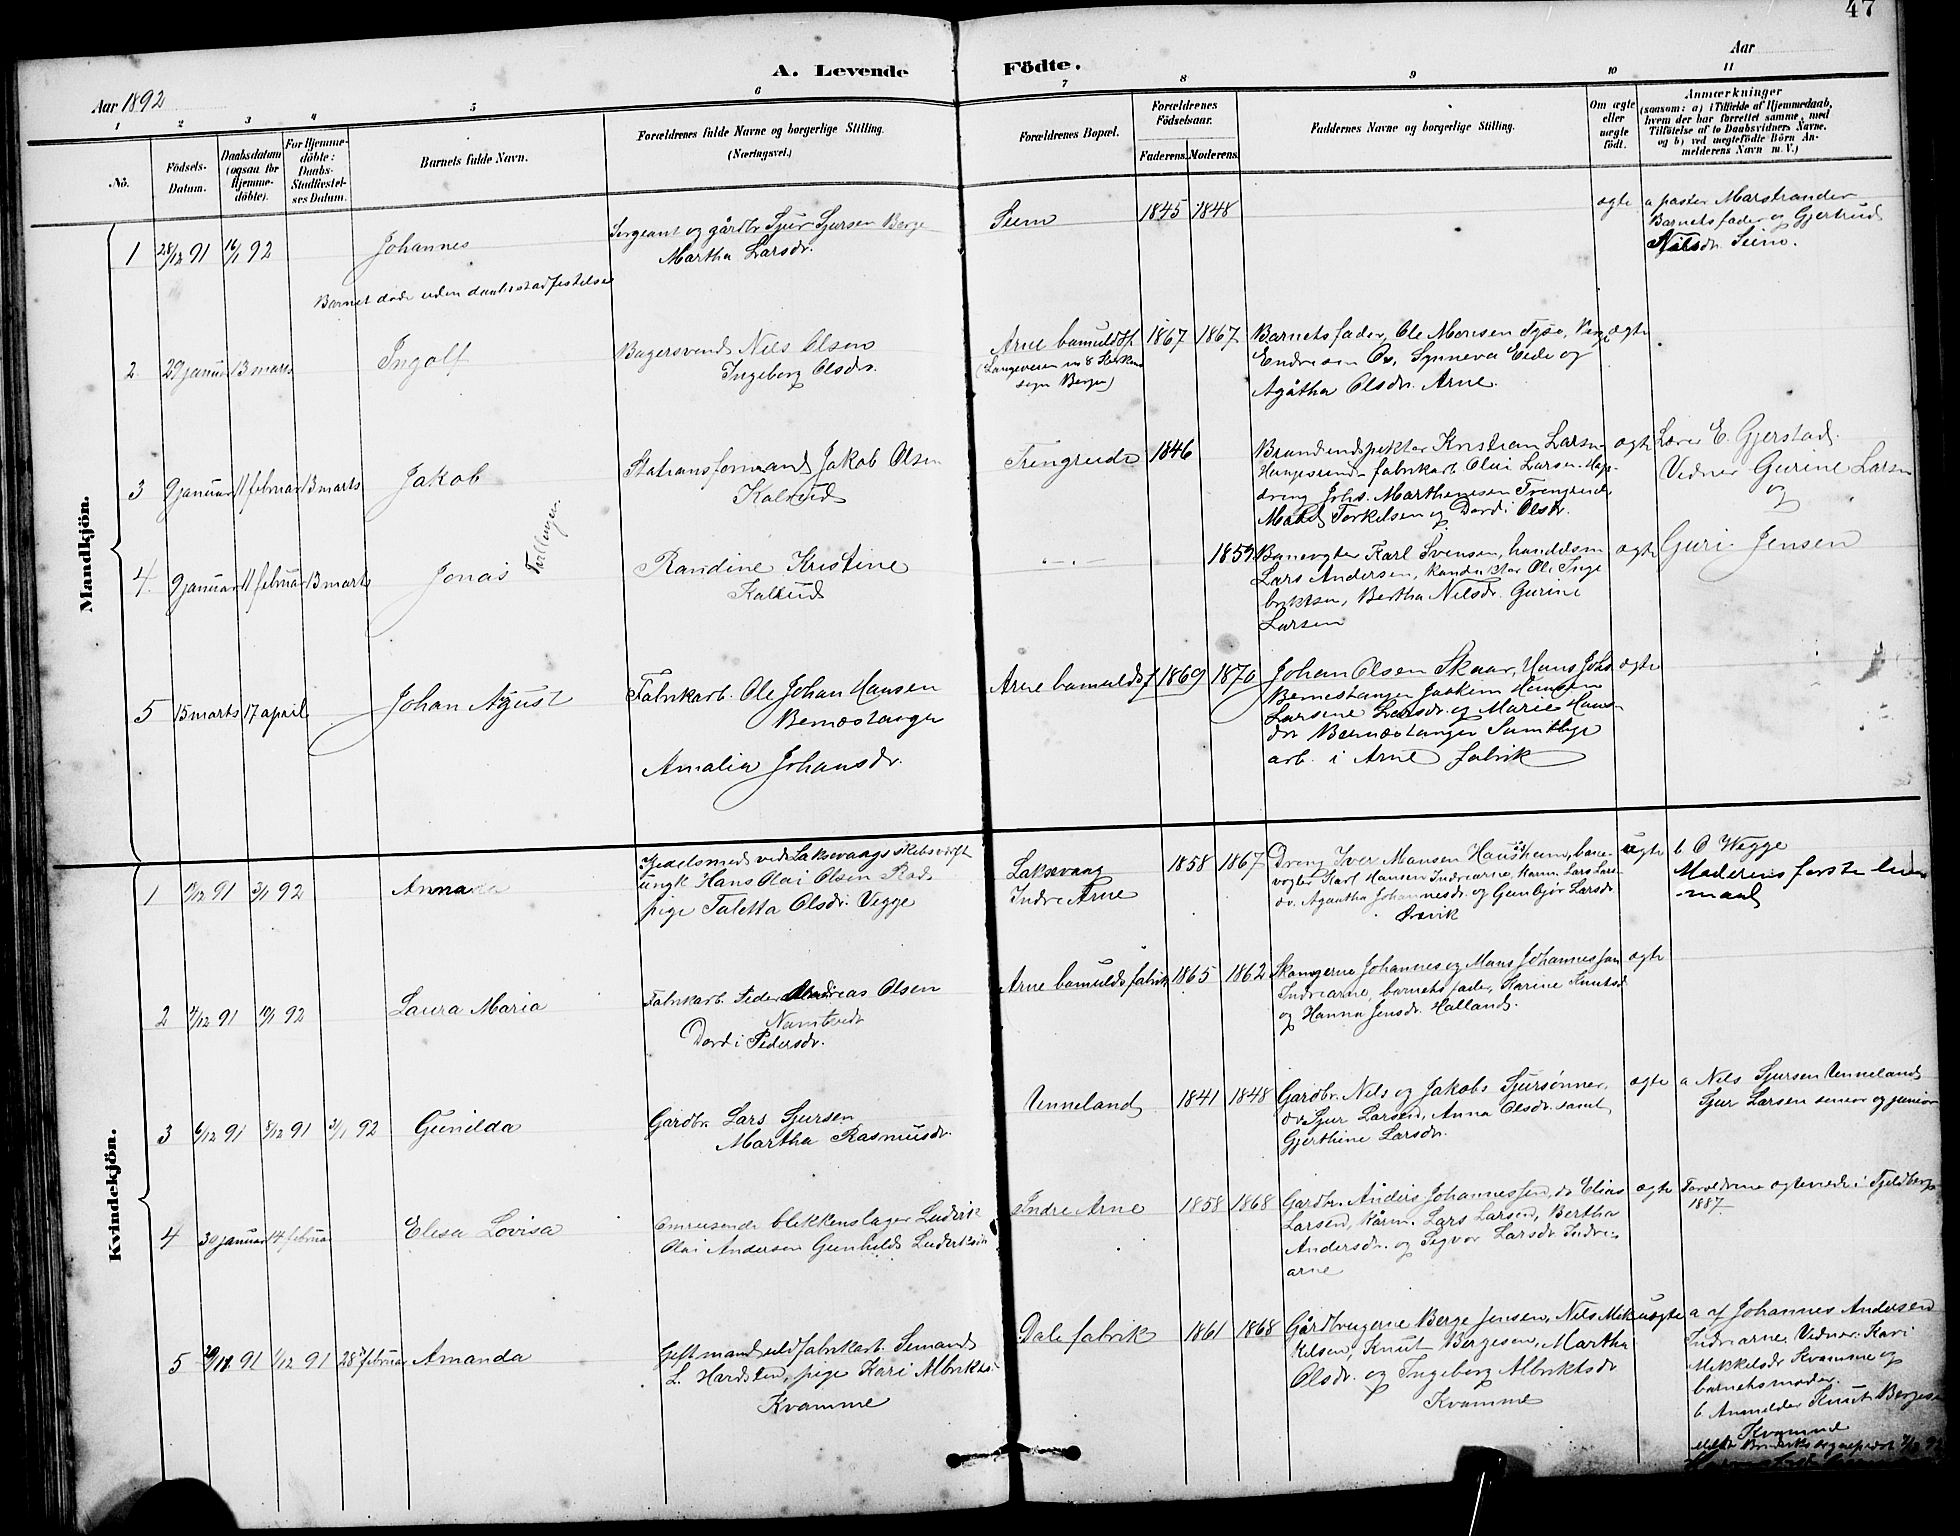 47
A. Levende Födte.
Aar 1892
Aar
1 2 3 4 5 6 7 8 9 10 11
Nö.
Födsels-
Datum.
Daabsdatum
(ogsaa for
Hjemme-
döbte).
For Hjemme-
döbte:
Daabs-
Stadfæstel-
ses Datum.
Barnets fulde Navn.
Forældrenes fulde Navne og borgerlige Stilling.
(Næringsvei.)
Forældrenes Bopæl.
Forældrenes
Födselsaar.
Faderens. Moderens.
Faddernes Navne og borgerlige Stilling.
Om ægte
eller
uægte
födt.
Anmærkninger
(saasom: a) i Tilfælde af Hjemmedaab,
hvem der har forrettet samme, med
Tilföielse af to Daabsvidners Navne,
og b) ved uægtefödte Börn An-
melderens Navn m. V.)
Mandkjön.
1 28/12 91 16/1 92
Johannes
Barnet döde uden daabsstadfestelse
Sergeant og gårdbr. Sjur Sjursen Berge
Martha Larsdr.
Seim
1845 1848
ægte
a pastor Marstrander
Barnets fader og Gjertrud
Nilsdr. Seim.
2 29 januar 13 marts
Ingolf
Bagersvend Nils Olsen
Ingeborg Olsdr.
Arne bomuldsf.
sogn Bergen)
1867 1867
Barnets fader, Ole Monsen Tyse,
Endresen Os, Synneva Eide og
Agåtha Olsdr. Arne.
ægte
3 9 januar 11 februar 13 marts
Jakob
Stationsformand Jakob Olsen
Kalrud
Trengreide
1846
Kristian Larsen
fabrikarb. Olai Larsen
dreng Johs. Marthinusen Trengreide
Torkelsen og Dordi Olsdr.
ægte
Lærer E. Gjerstad.
Vidner Gurine Larsen
og
4 9 januar 11 februar 13 marts
Jonas
Tvillinger
Randine Kristine
Kalrud
— . —
1859
Banevogter Karl Svensen, handelsm
Lars Andersen, konduktør Ole Inge
briktsen, Bertha Nilsdr. Gurine
Larsen
ægte
Guri Jensen
5 15 marts 17 april
Johan Agust
Fabrikarb. Ole Johan Hansen
Bernæstanger
Amalia Johansdr.
Arne bomuldsf
1869 1870
Johan Olsen Skaar, Hans Johs
Bernestanger Joakim Hansen
Larsine Larsdr. og Marie Hans-
dr Bernæstanger Samtlige
arb. i Arne fabrik
ægte
Kvindekjön.
1 /12 91 3/1 92
Anna
Gjedelsmed ved Laksevaags skibsværft
ungk Hans Olai Olsen
pige Taletta Olsdr. Vegge
Laksevaag
Indre Arne
1858 1867
Dreng Iver Monsen Haukheim, bane-
vogter Karl Hansen Indrearne, Lars Lars-
Agaatha Johannesdr. og Gunbjör Larsdr.
uægte
b. O Wegge
Moderens förste leier-
maal
2 /12 91 10/1 92
Laura Maria
Fabrikarb. Peder Andreas Olsen
Dordi Pedersdr.
Arne bomulds fabrik
1865 1862
Johannes og Mons Johannessen
Indrearne, barnets fader, Karine Knutsd
og Hanna Jensdr. Halland.
ægte
3 6/12 91 8/12 91 3/1 92
Gunilda
Gardbr. Lars Sjursen
Martha Rasmusdr.
Unneland
1841 1848
Gardbr. Nils og Jakob Sjursönner,
Sjur Larsen, Anna Olsdr. samt
Gjerthine Larsdr.
ægte
a Nils Sjursen Unneland
Sjur Larsen senior og junior
4 30 januar 14 februar
Elesa Lovisa
Omreisende blikkenslager Ludvik
Olai Andersen Gunhild Ludviksdr
Indre Arne
1858 1868
Gardbr. Anders Johannessen, do Elias
Larsen, Lars Larsen, Bertha
Andersdr. og Sigvor Larsdr Indre-
arne
ægte
Forældrene ægteviede i Fjeldberg
1887
5 91 1/12 91 28 februar
Amanda
Gift mand uldfabrikarb. Semand
L. Hardsten, pige Kari Albrikts
Kvamme
Dale fabrik
1861 1868
Gårdbrugerne Berge Jensen, Nils Mik
kelsen, Knut Bergesen, Martha
Olsdr. og Ingeborg Albriktsdr
Kvamme
uægte
a af Johannes Andersen
Indrearne, Vidner: Kari
Mikkelsdr Kvamme og
barnets moder.
b Anmelder Knut Bergesen
Kvamme